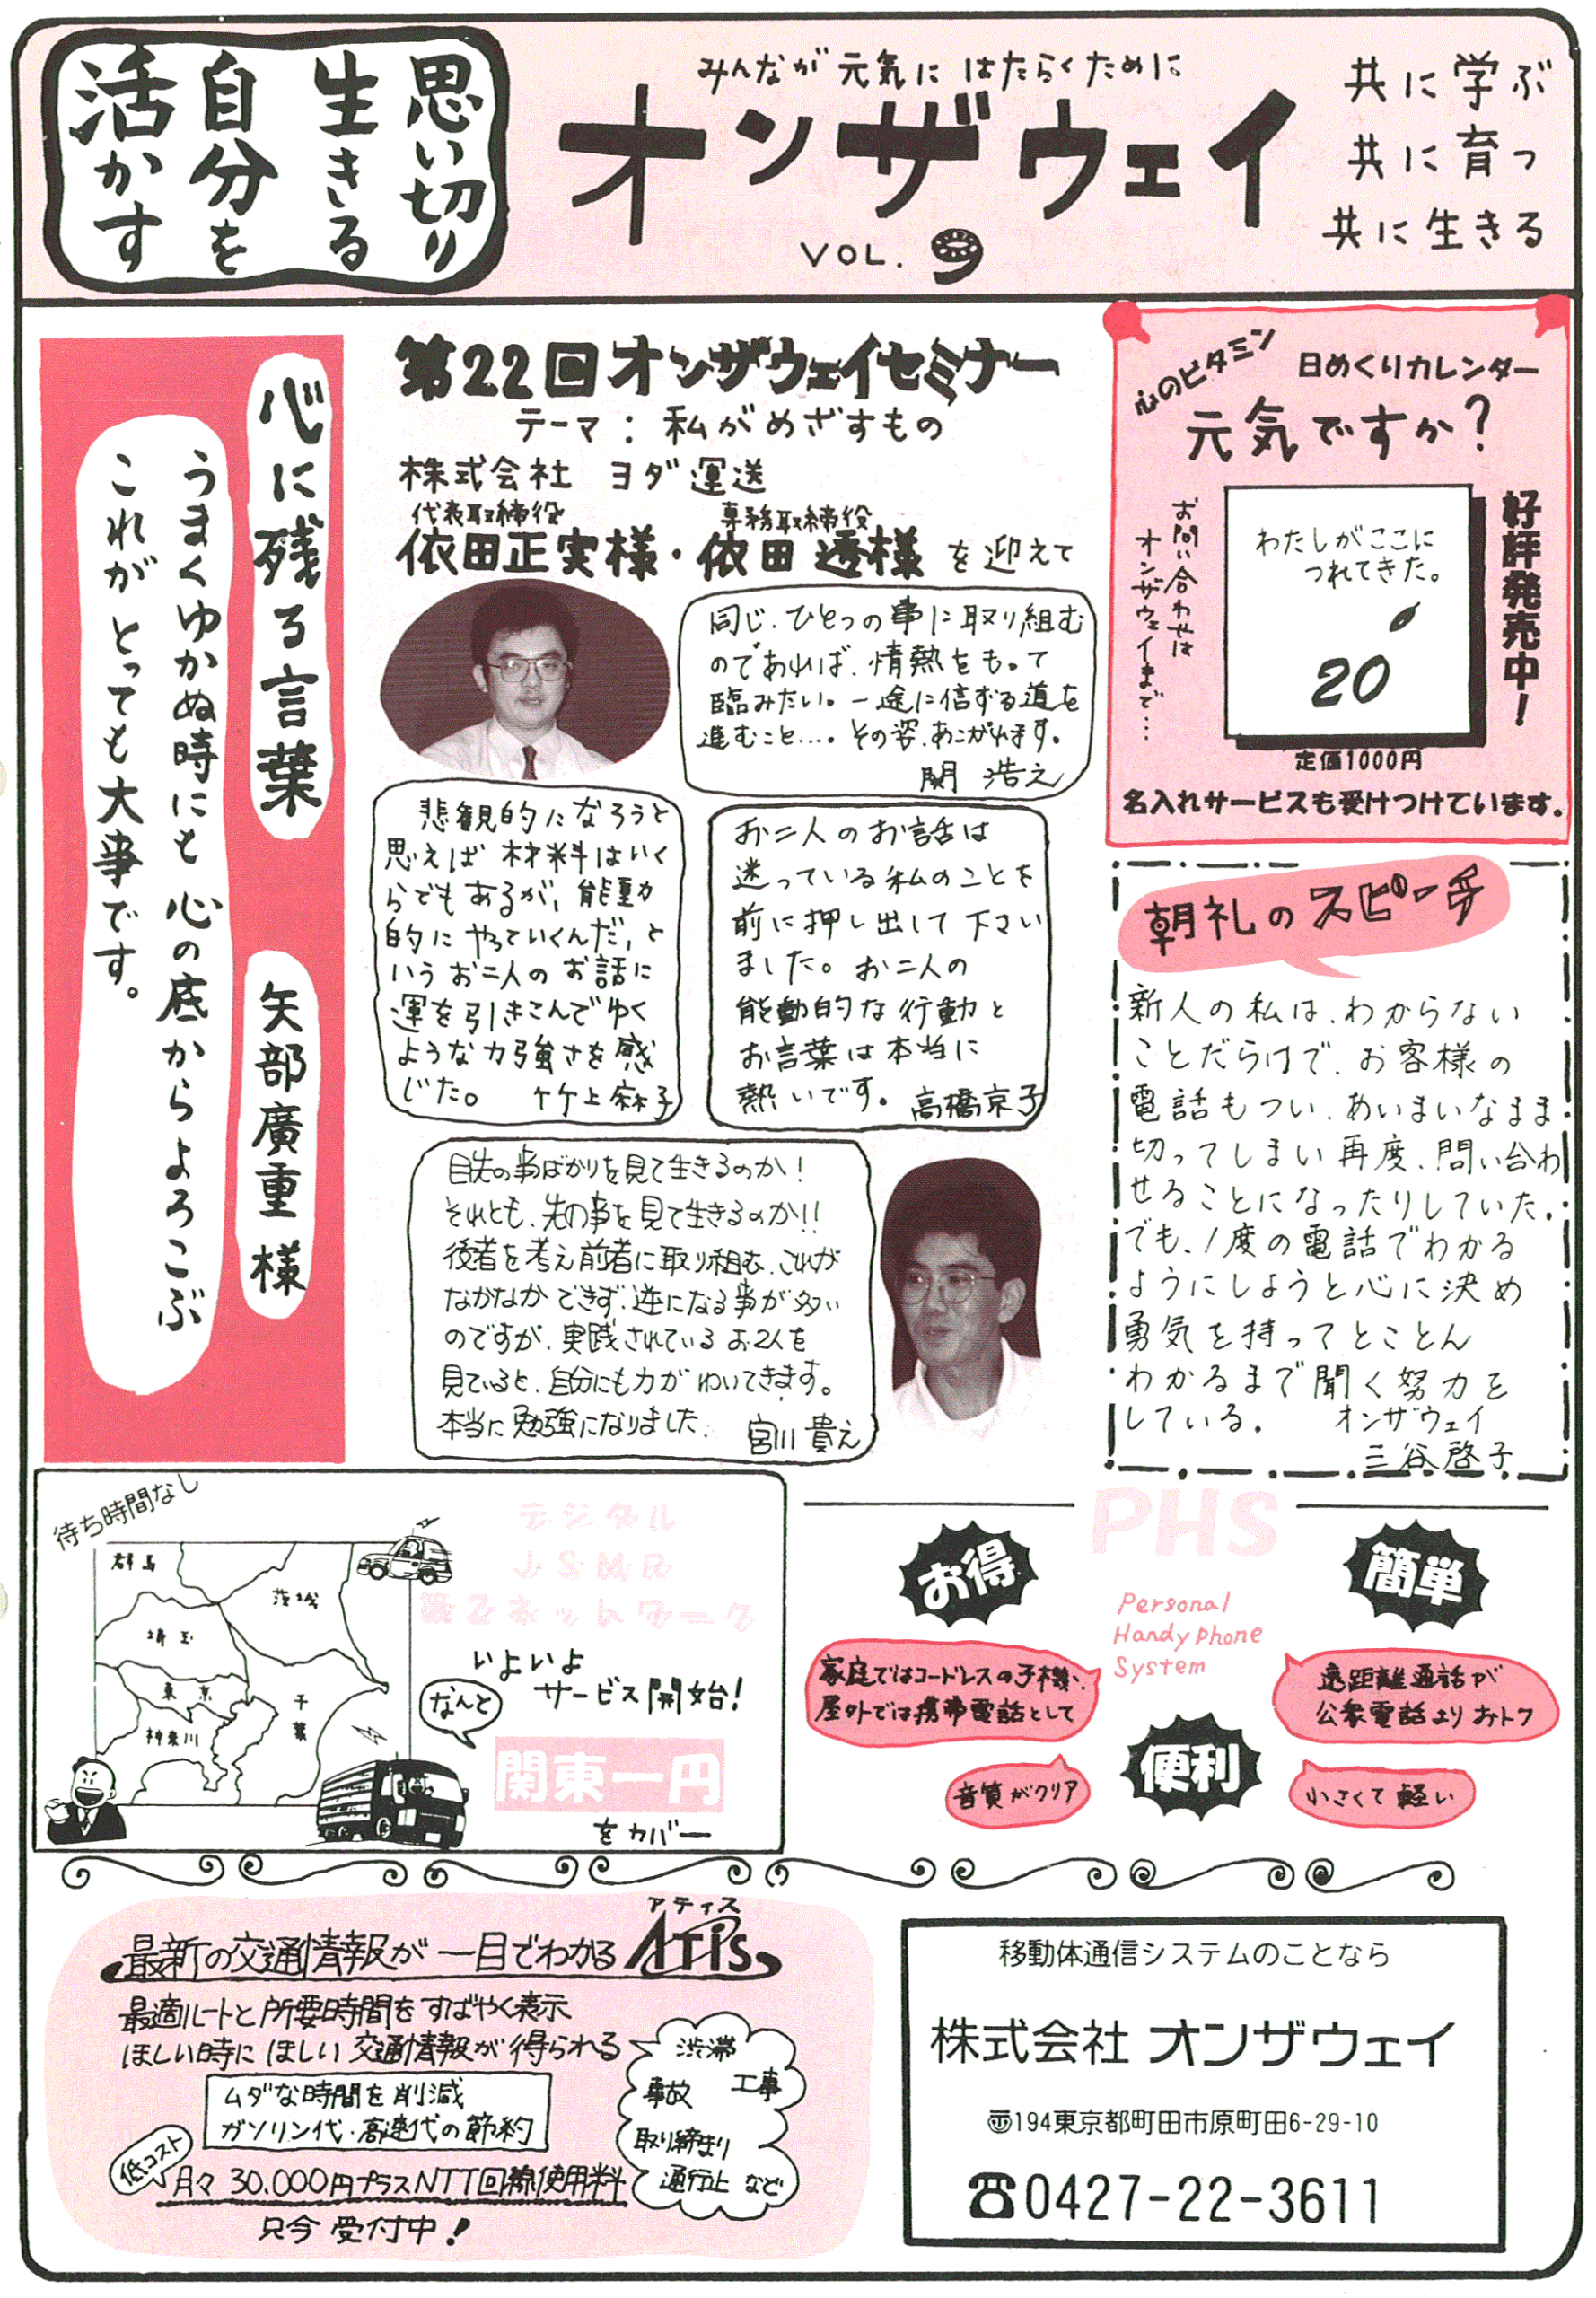 思い切り
生きる
自分を
活かす
みんなが元気にはたらくために
オンザウェイ
VOL.9
共に学ぶ
共に育つ
共に生きる
心に残る言葉 矢部廣重様
うまくゆかぬ時にも心の底からよろこぶ
これがとっても大事です。
第22回オンザウェイセミナー
テーマ:私がめざすもの
株式会社 ヨダ運送
代表取締役 専務取締役
依田正実様・依田 透様を迎えて
同じ、ひとつの事に取り組む
のであれば、情熱をもって
臨みたい。一途に信ずる道を
進むこと…。その姿、あこがれます。
関 浩之
悲観的になろうと
思えば材料はいく
らでもあるが、能動
的にやっていくんだ、と
いうお二人のお話に
運を引きこんでゆく
ような力強さを感
じた。 竹上麻子
お二人のお話は
迷っている私のことを
前に押し出して下さい
ました。お二人の
能動的な行動と
お言葉は本当に
熱いです。 高橋京子
目先の事ばかりを見て生きるのか!
それとも、先の事を見て生きるのか!!
後者を考え前者に取り組む、これが
なかなかできず、逆になる事が多い
のですが、実践されているお2人を
見ていると、自分にも力がわいてきます。
本当に勉強になりました。 宮川貴え
心のビタミン
日めくりカレンダー
元気ですか?
好評発売中!
わたしがここに
つれてきた。
20
お問い合わせは
オンザウェイまで…
定価1000円
名入れサービスも受けつけています。
朝礼のスピーチ
新人の私は、わからない
ことだらけで、お客様の
電話もつい、あいまいなまま
切ってしまい再度、問い合わ
せることになったりしていた。
でも、1度の電話でわかる
ようにしようと心に決め
勇気を持ってとことん
わかるまで聞く努力を
している。 オンザウェイ
三谷啓子
待ち時間なし
群馬
茨城
埼玉
東京
千葉
神奈川
デジタル
JSMR
第2ネットワーク
いよいよ
サービス開始!
なんと
関東一円
をカバー
PHS
Personal
Handy phone
System
お得
簡単
便利
家庭ではコードレスの子機、
屋外では携帯電話として
遠距離通話が
公衆電話よりおトク
音質がクリア
小さくて軽い
アティス
最新の交通情報が一目でわかる ATIS
最適ルートと所要時間をすばやく表示
ほしい時にほしい交通情報が得られる
ムダな時間を削減
ガソリン代・高速代の節約
低コスト
月々30.000円プラスNTT回線使用料
只今受付中!
渋滞
事故 工事
取り締まり
通行止など
移動体通信システムのことなら
株式会社 オンザウェイ
〠194東京都町田市原町田6-29-10
☎0427-22-3611